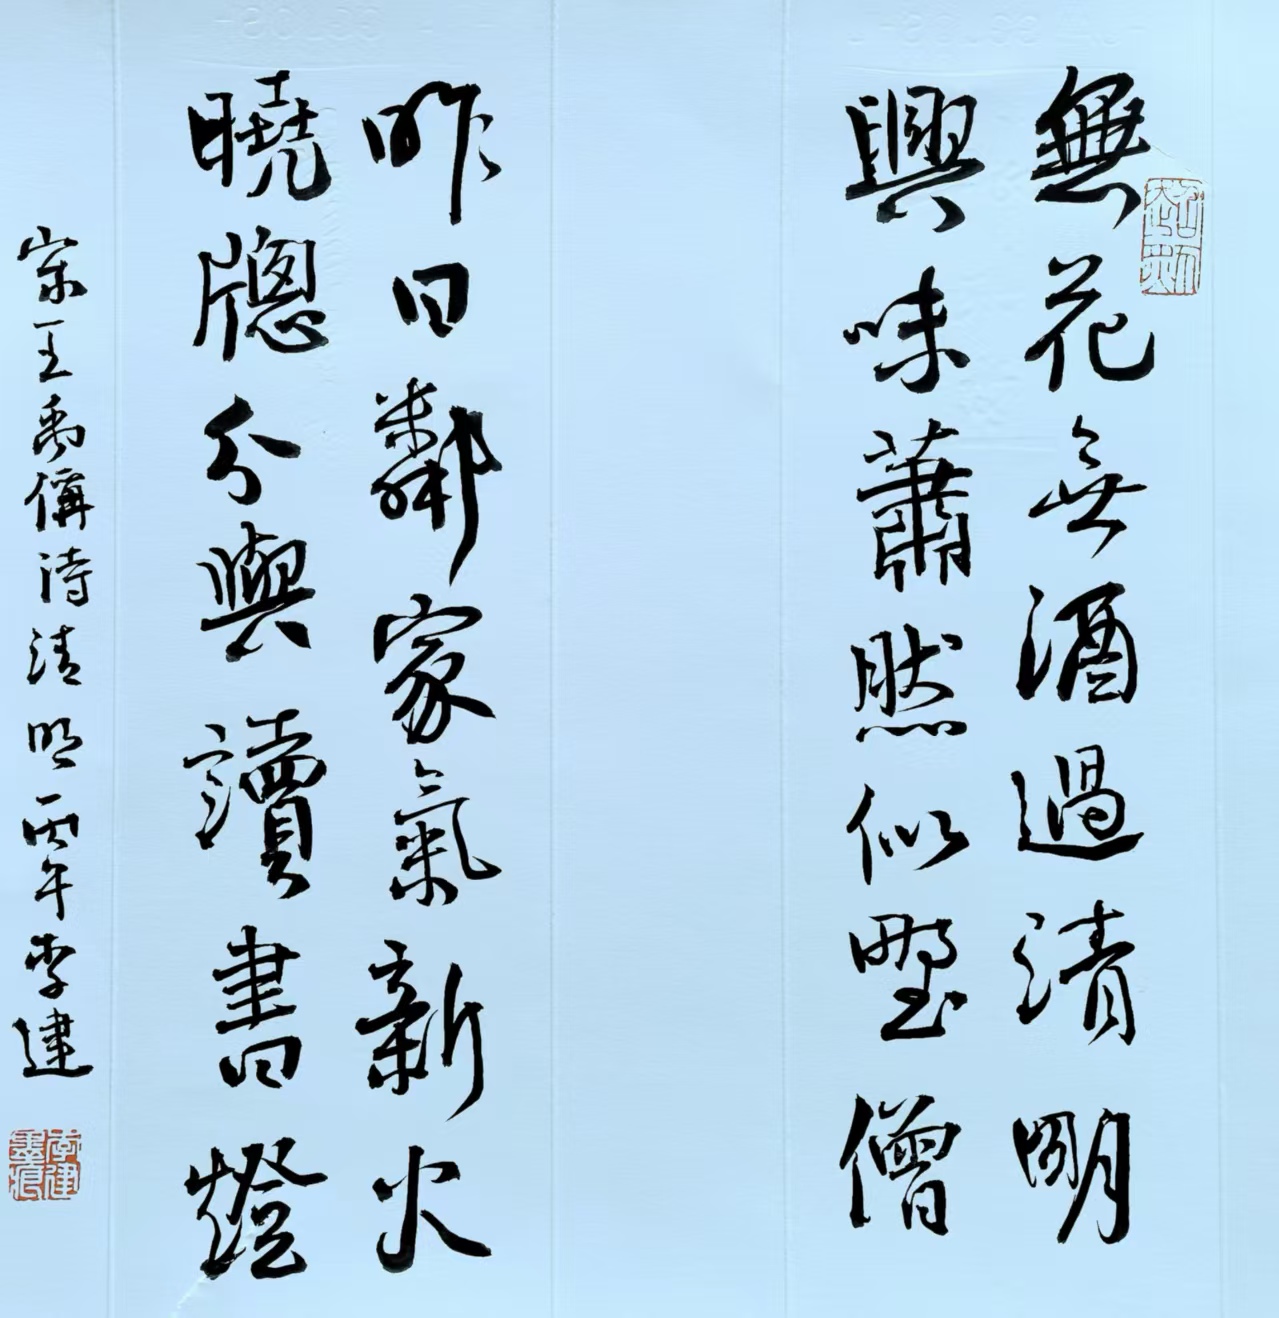 無花無酒過清明
興味蕭然似野僧
昨日鄰家氣新火
曉牕分與讀書燈
宋王禹偁詩清明丙午李建
李建墨痕